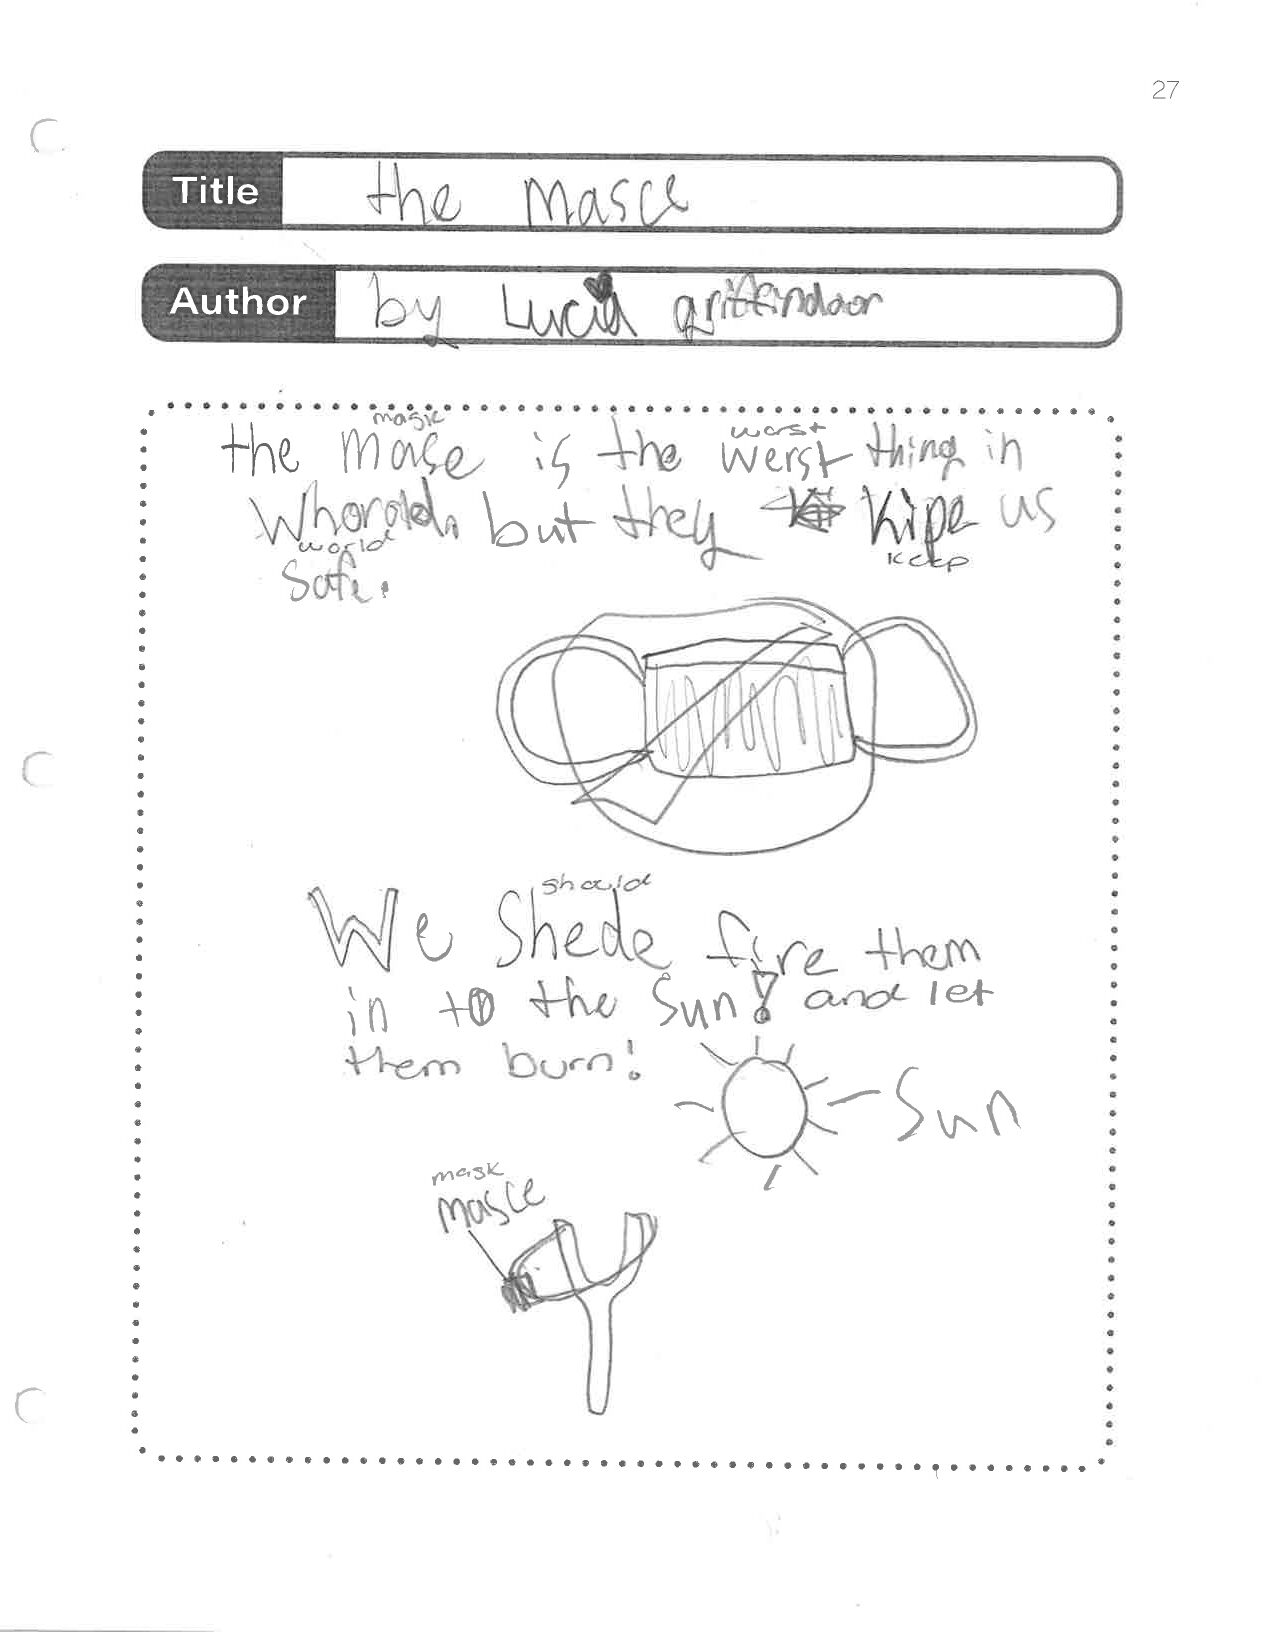 27
Title the Masce
Author by Lucia griffindoor
mask worst
the Masce is the werst thing in
Whorald, but they Kipe us
world keep
Safe.
should
We Shede fire them
in to the Sun! and let
them burn!
Sun
mask
masce